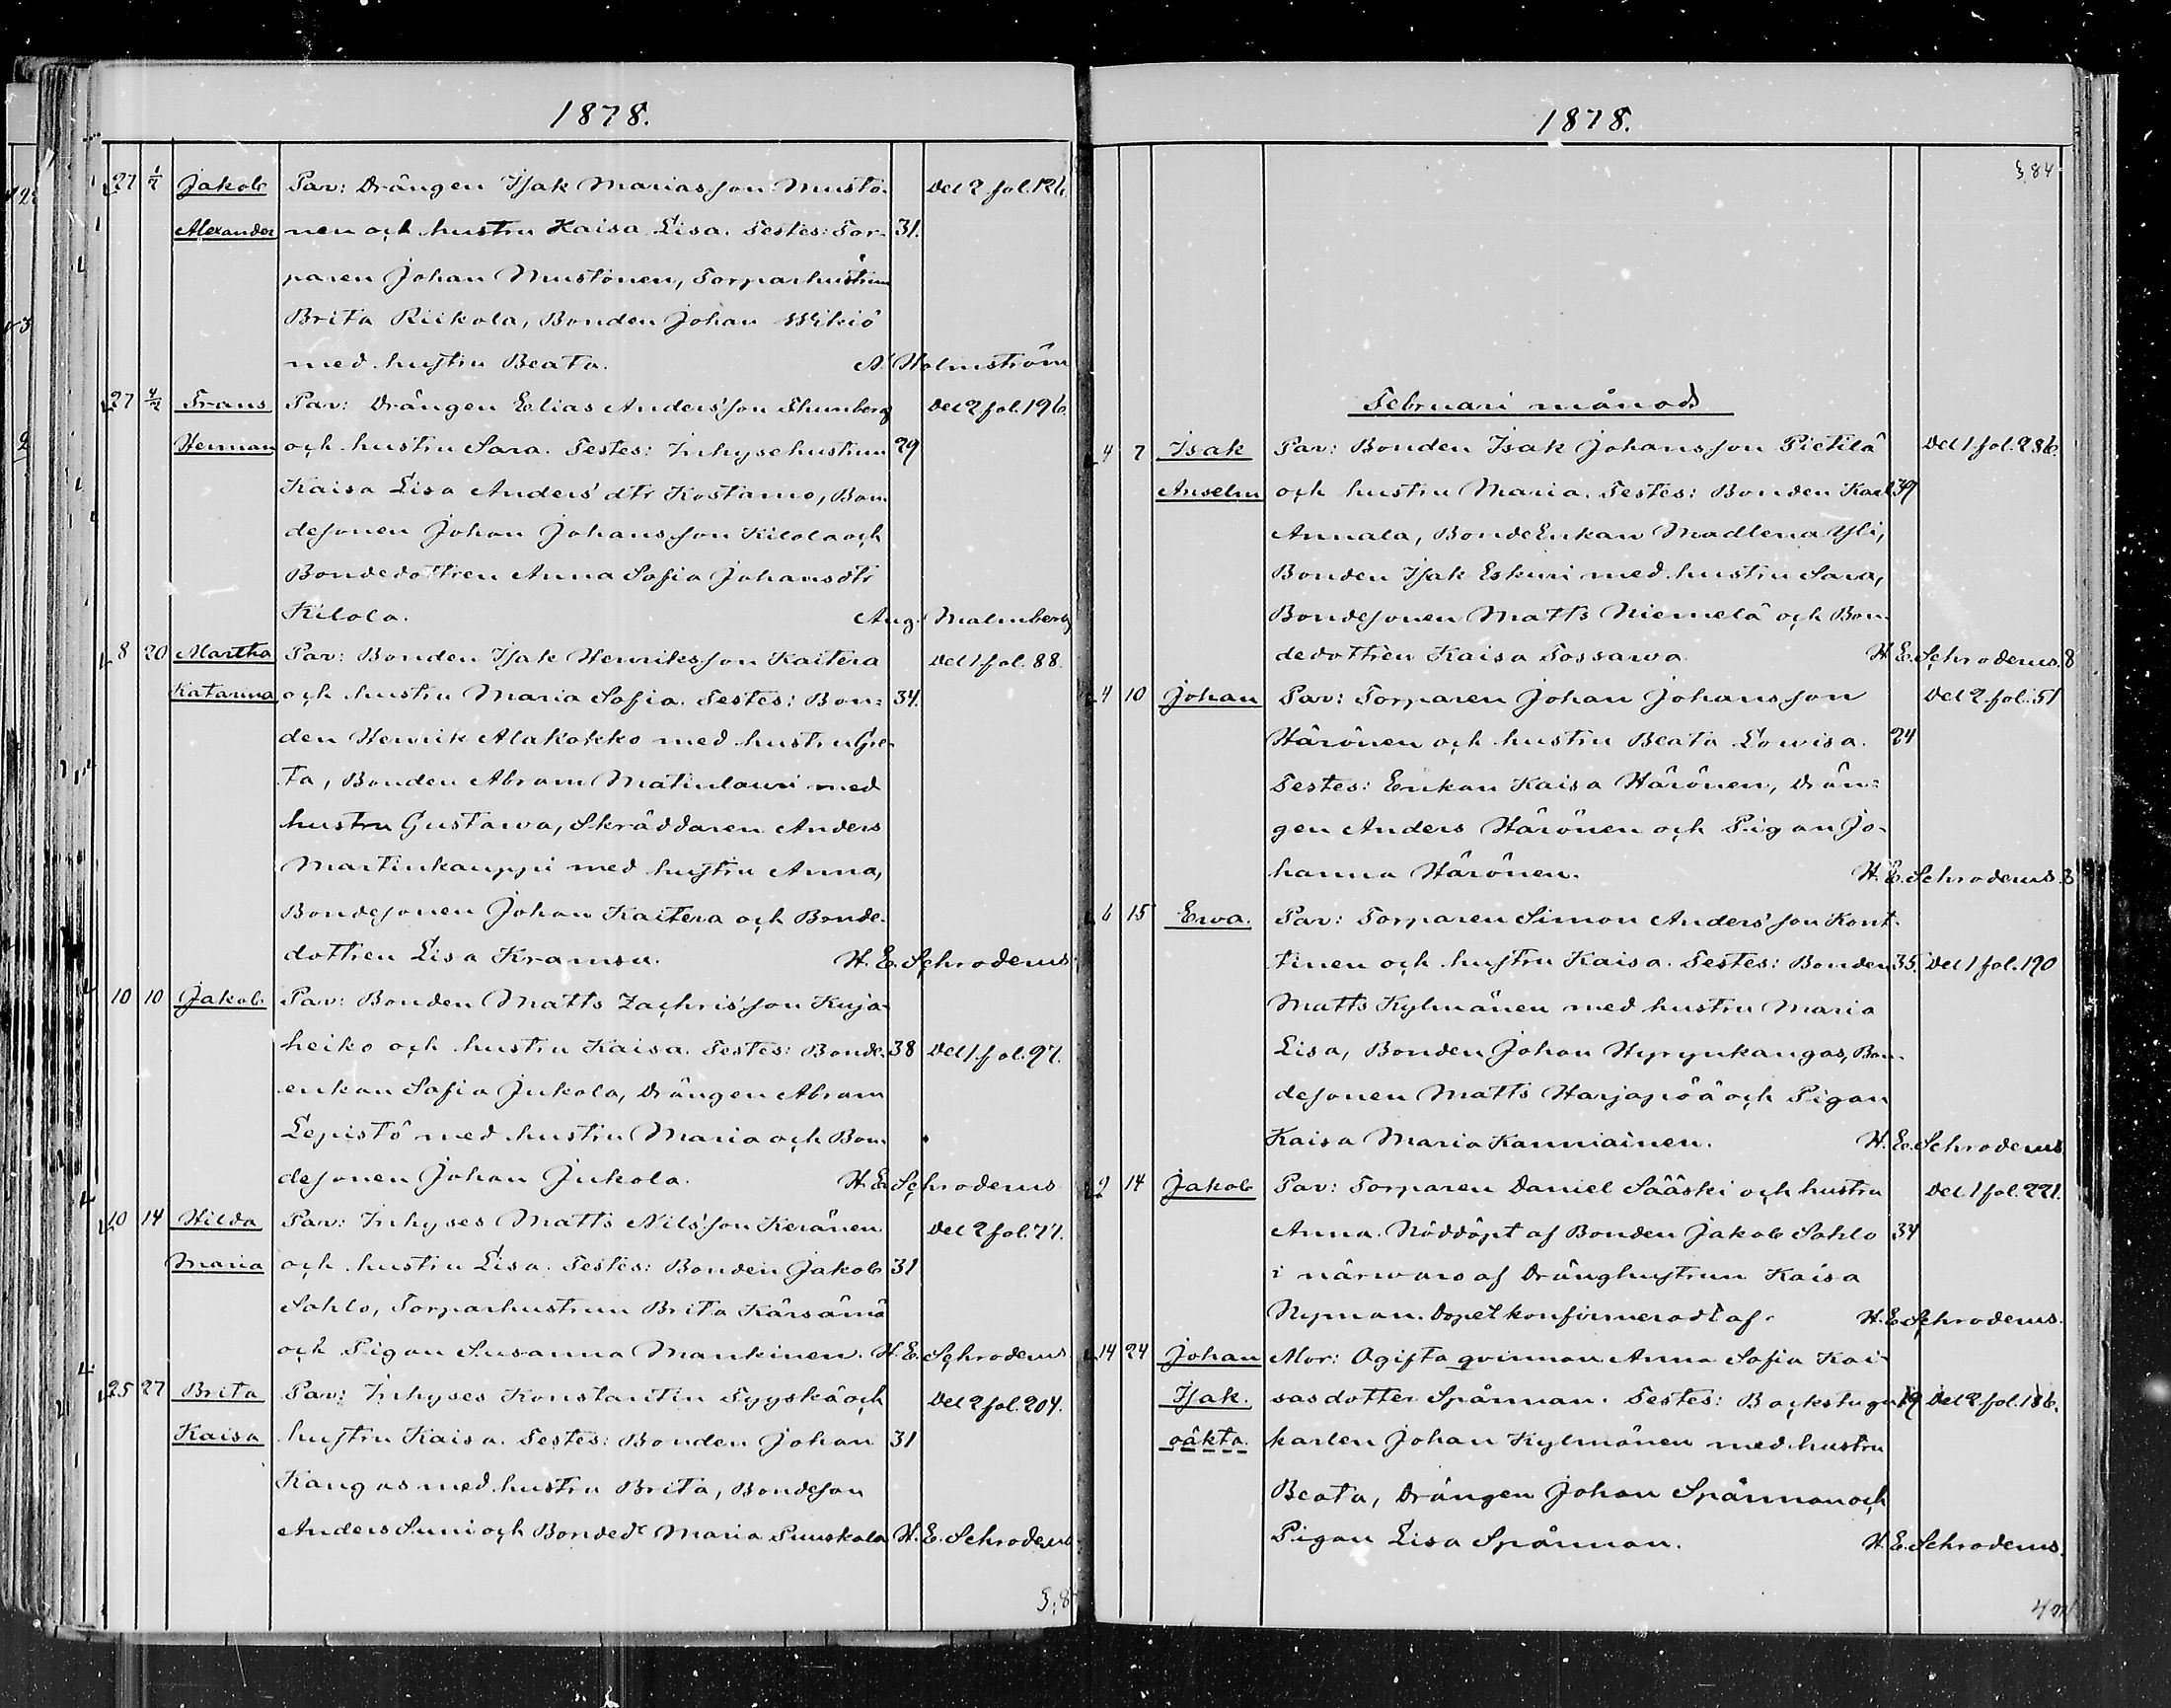 1878.
27 1/2 Jakob Par: Drängen Isak Mariasson Mustö- Del 2 fol. 126.
Alexander nen och hustru Kaisa Lisa. Testes: Tor- 31.
paren Johan Mustönen, Torparhustrun
Brita Riikola, Bonden Johan Wikiö
med hustru Beata. A. Holmström
27 4/2 Frans Par: Drängen Elias Anders'son Thunberg Del 2 fol. 196.
Herman och hustru Sara. Testes: Inhysehustrun 29
Kaisa Lisa Anders'dtr Kostamo, Bon-
desonen Johan Johansson Kilola och
Bondedottren Anna Sofia Johansdtr
Kilola. Aug. Malmberg
8 20 Martha Par: Bonden Isak Henriksson Kaitera Del 1 fol. 88.
Katarina och hustru Maria Sofia. Testes: Bon- 34.
den Henrik Alakokko med hustru Gre-
ta, Bonden Abram Matinlauri med
hustru Gustawa, Skräddaren Anders
Martinkauppi med hustru Anna,
Bondesonen Johan Kaitera och Bonde-
dottren Lisa Kramsu. H. E. Schroderus
10 10 Jakob Par: Bonden Matts Zachris'son Kuja-
heiko och hustru Kaisa. Testes: Bonde- 38 Del 1 fol. 97.
enkan Sofia Jukola, Drängen Abram
Lepistö med hustru Maria och Bon-
desonen Johan Jukola. H. E. Schroderus
10 14 Hilda Par: Inhyses Matts Nils'son Keränen Del 2 fol. 77.
Maria och hustru Lisa. Testes: Bonden Jakob 31
Sohlo, Torparhustrun Brita Kärsämä
och Pigan Susanna Mankinen. H. E. Schroderus
25 27 Brita Par: Inhyses Konstantin Tyyskä och Del 2 fol. 204.
Kaisa hustru Kaisa. Testes: Bonden Johan 31
Kangas med hustru Brita, Bondeson
Anders Suni och Bondedr Maria Suuskola H. E. Schroderus
1878.
§. 84
Februari månad
4 7 Isak Par: Bonden Isak Johansson Pietilä Del 1 fol. 286.
Anselm och hustru Maria. Testes: Bonden Karl 39
Annala, BondeEnkan Madlena Yli,
Bonden Isak Eskuri med hustru Sara,
Bondesonen Matts Niemelä och Bon-
dedottren Kaisa Tossawa H. E. Schroderus. 8
4 10 Johan Par: Torparen Johan Johansson Del 2 fol. 51
Härönen och hustru Beata Lowisa. 24
Testes: Enkan Kaisa Härönen, Drän-
gen Anders Härönen och Pigan Jo-
hanna Härönen. H. E. Schroderus. 8
6 15 Ewa. Par: Torparen Simon Anders'son Kont-
tinen och hustru Kaisa. Testes: Bonden 35. Del 1 fol. 190
Matts Kylmänen med hustru Maria
Lisa, Bonden Johan Hyrynkangas, Bon-
desonen Matts Harjapää och Pigan
Kaisa Maria Kanniainen. H. E. Schroderus
2 14 Jakob Par: Torparen Daniel Sääski och hustru Del 1 fol. 221.
Anna. Nöddöpt af Bonden Jakob Sohlo 34
i närwaro af Dränghustrun Kaisa
Nyman. Dopet konfirmeradt af H. E. Schroderus.
14 24 Johan Mor: Ogifta qvinnan Anna Sofia Kai-
Isak. sasdotter Spårman. Testes: Backstugu- 19 Del 2 fol. 186.
oäkta. karlen Johan Kylmänen med hustru
Beata, Drängen Johan Spårman och
Pigan Lisa Spårman. H. E. Schroderus.